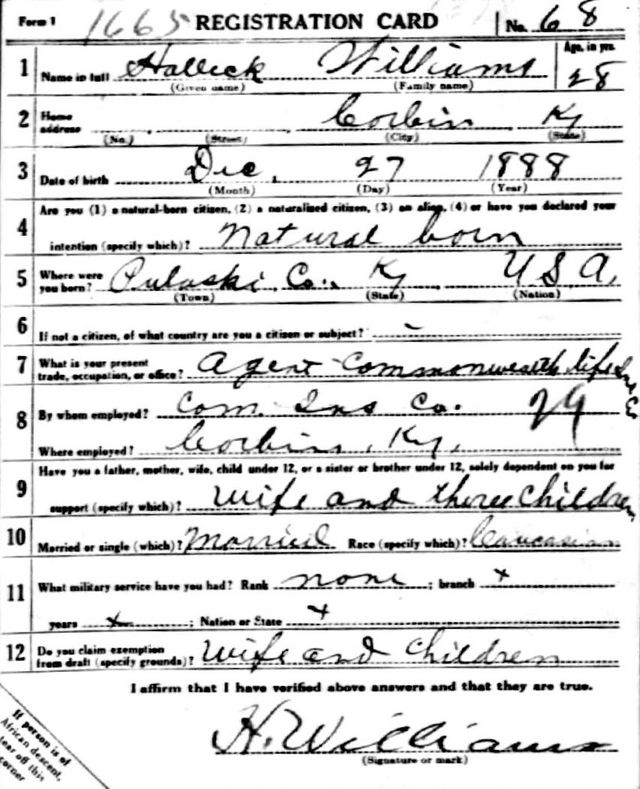 Form 1 1665 REGISTRATION CARD No. 68
1 Name in full Halleck Williams Age, in yrs. 28
(Given name) (Family name)
2 Home address Corbin Ky
(No.) (Street) (City) (State)
3 Date of birth Dec. 27 1888
(Month) (Day) (Year)
4 Are you (1) a natural-born citizen, (2) a naturalized citizen, (3) an alien, (4) or have you declared your
intention (specify which)? Natural born
5 Where were you born? Pulaski Co. Ky U S A.
(Town) (State) (Nation)
6 If not a citizen, of what country are you a citizen or subject? -
7 What is your present trade, occupation, or office? Agent Commonwealth Life Ins Co
8 By whom employed? Com. Ins Co. 29
Where employed? Corbin, Ky.
9 Have you a father, mother, wife, child under 12, or a sister or brother under 12, solely dependent on you for
support (specify which)? Wife and three children
10 Married or single (which)? Married Race (specify which)? Caucasian
11 What military service have you had? Rank none ; branch x
years x ; Nation or State x
12 Do you claim exemption from draft (specify grounds)? Wife and Children
I affirm that I have verified above answers and that they are true.
H. Williams
(Signature or mark)
If person is of
African descent,
tear off this
corner